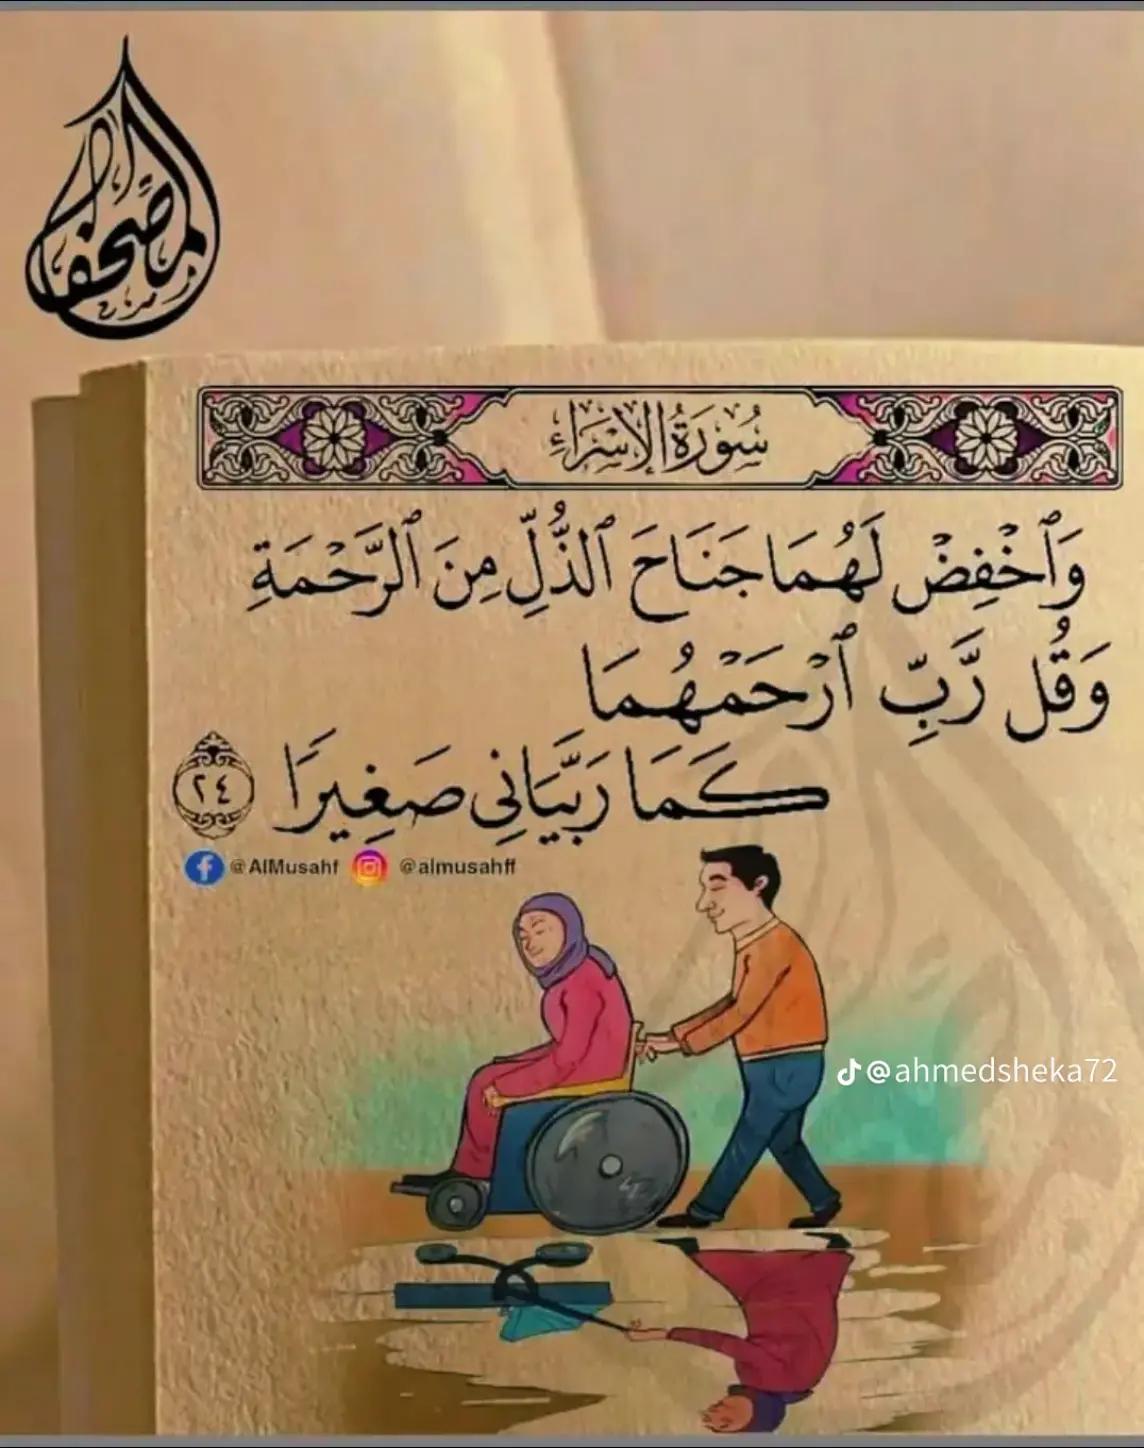 المصحف
سُورَةُ الإِسْرَاءِ
وَٱخْفِضْ لَهُمَا جَنَاحَ ٱلذُّلِّ مِنَ ٱلرَّحْمَةِ
وَقُل رَّبِّ ٱرْحَمْهُمَا
كَمَا رَبَّيَانِى صَغِيرًا ٢٤
@AlMusahf @almusahff
@ahmedsheka72